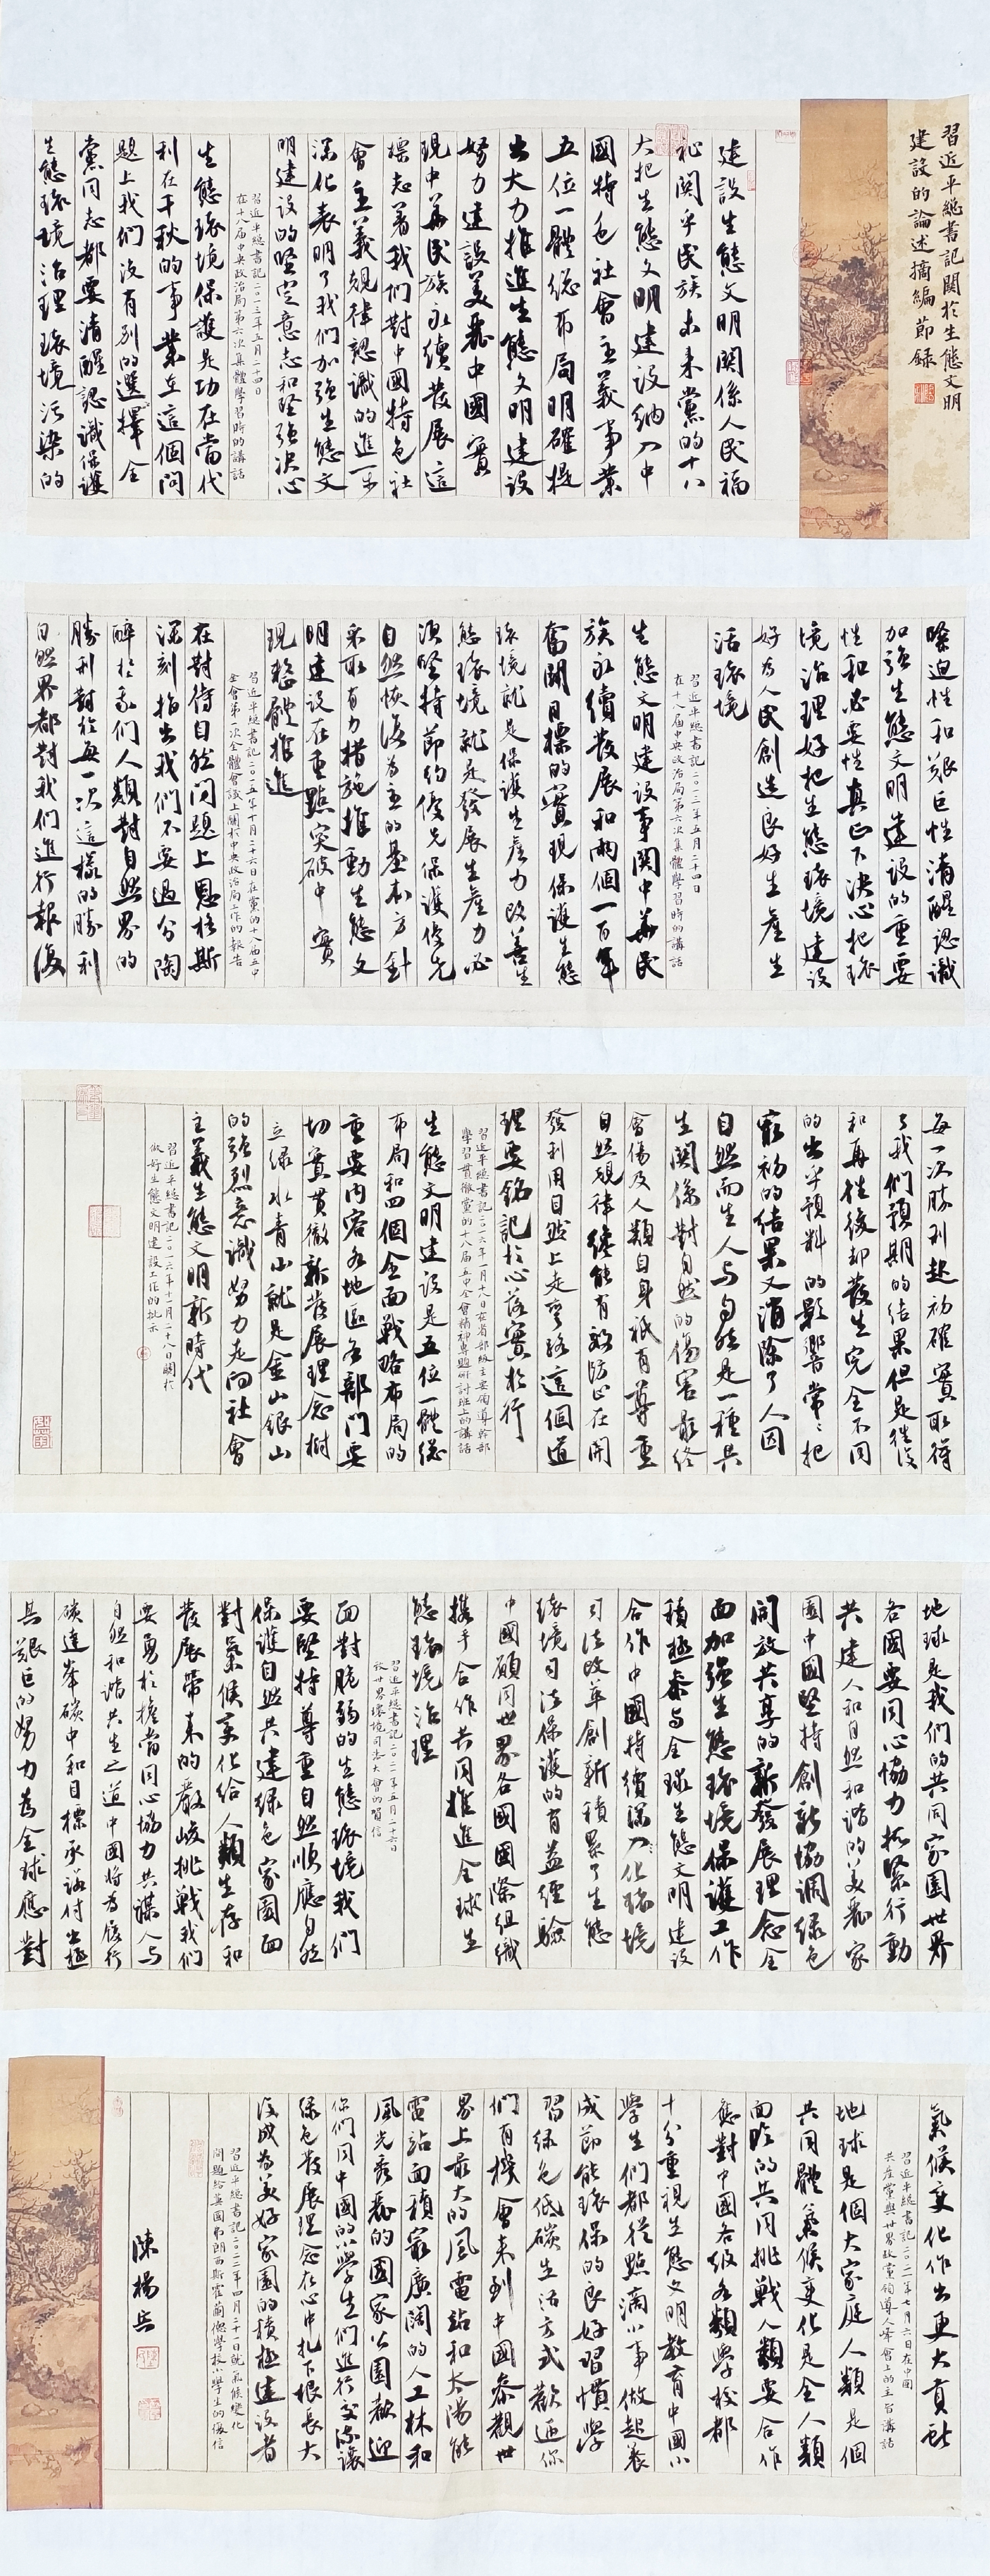 習近平總書記關於生態文明
建設的論述摘編節錄
建設生態文明關係人民福
祉關乎民族未来黨的十八
大把生態文明建設納入中
國特色社會主義事業
五位一體総布局明確提
出大力推進生態文明建設
努力建設美麗中國實
現中華民族永續發展這
標志着我們對中國特色社
會主義規律認識的進一步
深化表明了我們加強生態文
明建設的堅定意志和堅強決心
習近平總書記二〇一三年五月二十四日
在十八届中央政治局第六次集體學習時的講話
生態環境保護是功在當代
利在千秋的事業在這個問
題上我們没有别的選擇全
黨同志都要清醒認識保護
生態環境治理環境污染的
緊迫性和艱巨性清醒認識
加強生態文明建設的重要
性和必要性真正下決心把環
境治理好把生態環境建設
好為人民創造良好生產生
活環境
習近平總書記二〇一三年五月二十四日
在十八届中央政治局第六次集體學習時的講話
生態文明建設事關中華民
族永續發展和兩個一百年
奮鬬目標的實現保護生態
環境就是保護生產力改善生
態環境就是發展生產力必
須堅持節約優先保護優先
自然恢復為主的基本方針
采取有力措施推動生態文
明建設在重點突破中實
現整體推進
習近平總書記二〇一五年十月二十六日在黨的十八届五中
全會第一次全體會議上關於中央政治局工作的報告
在對待自然問題上恩格斯
深刻指出我們不要過分陶
醉於我們人類對自然界的
勝利對於每一次這樣的勝利
自然界都對我們進行報復
每一次勝利起初確實取得
了我們預期的結果但是往後
和再往後却發生完全不同
的出乎預料的影響常々把
最初的結果又消除了人因
自然而生人与自然是一種共
生關係對自然的傷害最終
會傷及人類自身衹有尊重
自然規律纔能有效防止在開
發利用自然上走彎路這個道
理要銘記於心落實於行
習近平總書記二〇一六年一月十八日在省部級主要領導幹部
學習貫徹黨的十八届五中全會精神專題研討班上的講話
生態文明建設是五位一體総
布局和四個全面戰略布局的
重要内容各地區各部門要
切實貫徹新發展理念樹
立緑水青山就是金山銀山
的強烈意識努力走向社會
主義生態文明新時代
習近平總書記二〇一六年十一月二十八日關於
做好生態文明建設工作的批示
地球是我們的共同家園世界
各國要同心協力抓緊行動
共建人和自然和諧的美麗家
園中國堅持創新協調緑色
開放共享的新發展理念全
面加強生態環境保護工作
積極參与全球生態文明建設
合作中國持續深入化環境
司法改革創新積累了生態
環境司法保護的有益經驗
中國願同世界各國國際組織
携手合作共同推進全球生
態環境治理
習近平總書記二〇二一年五月二十六日
致世界環境司法大會的賀信
面對脆弱的生態環境我們
要堅持尊重自然順應自然
保護自然共建緑色家園面
對氣候变化给人類生存和
發展帶来的嚴峻挑戰我們
要勇於擔當同心協力共謀人与
自然和諧共生之道中國將為履行
碳達峯碳中和目標承諾付出極
其艱巨的努力為全球應對
氣候变化作出更大貢献
習近平總書記二〇二一年七月六日在中國
共產黨與世界政黨領導人峰會上的主旨講話
地球是個大家庭人類是個
共同體氣候变化是全人類
面臨的共同挑戰人類要合作
應對中國各级各類學校都
十分重視生態文明教育中國小
學生們都從點滴小事做起養
成節能環保的良好習慣學
習緑色低碳生活方式歡迎你
們有機會来到中國參觀世
界上最大的風電站和太陽能
電站面積最廣闊的人工林和
風光秀麗的國家公園歡迎
你們同中國的小學生們進行交流讓
緑色發展理念在心中扎下根長大
後成為美好家園的積極建設者
習近平總書記二〇二二年四月二十一日就氣候變化
問題給英國弗朗西斯霍蘭德學校小學生的復信
陳楊兵